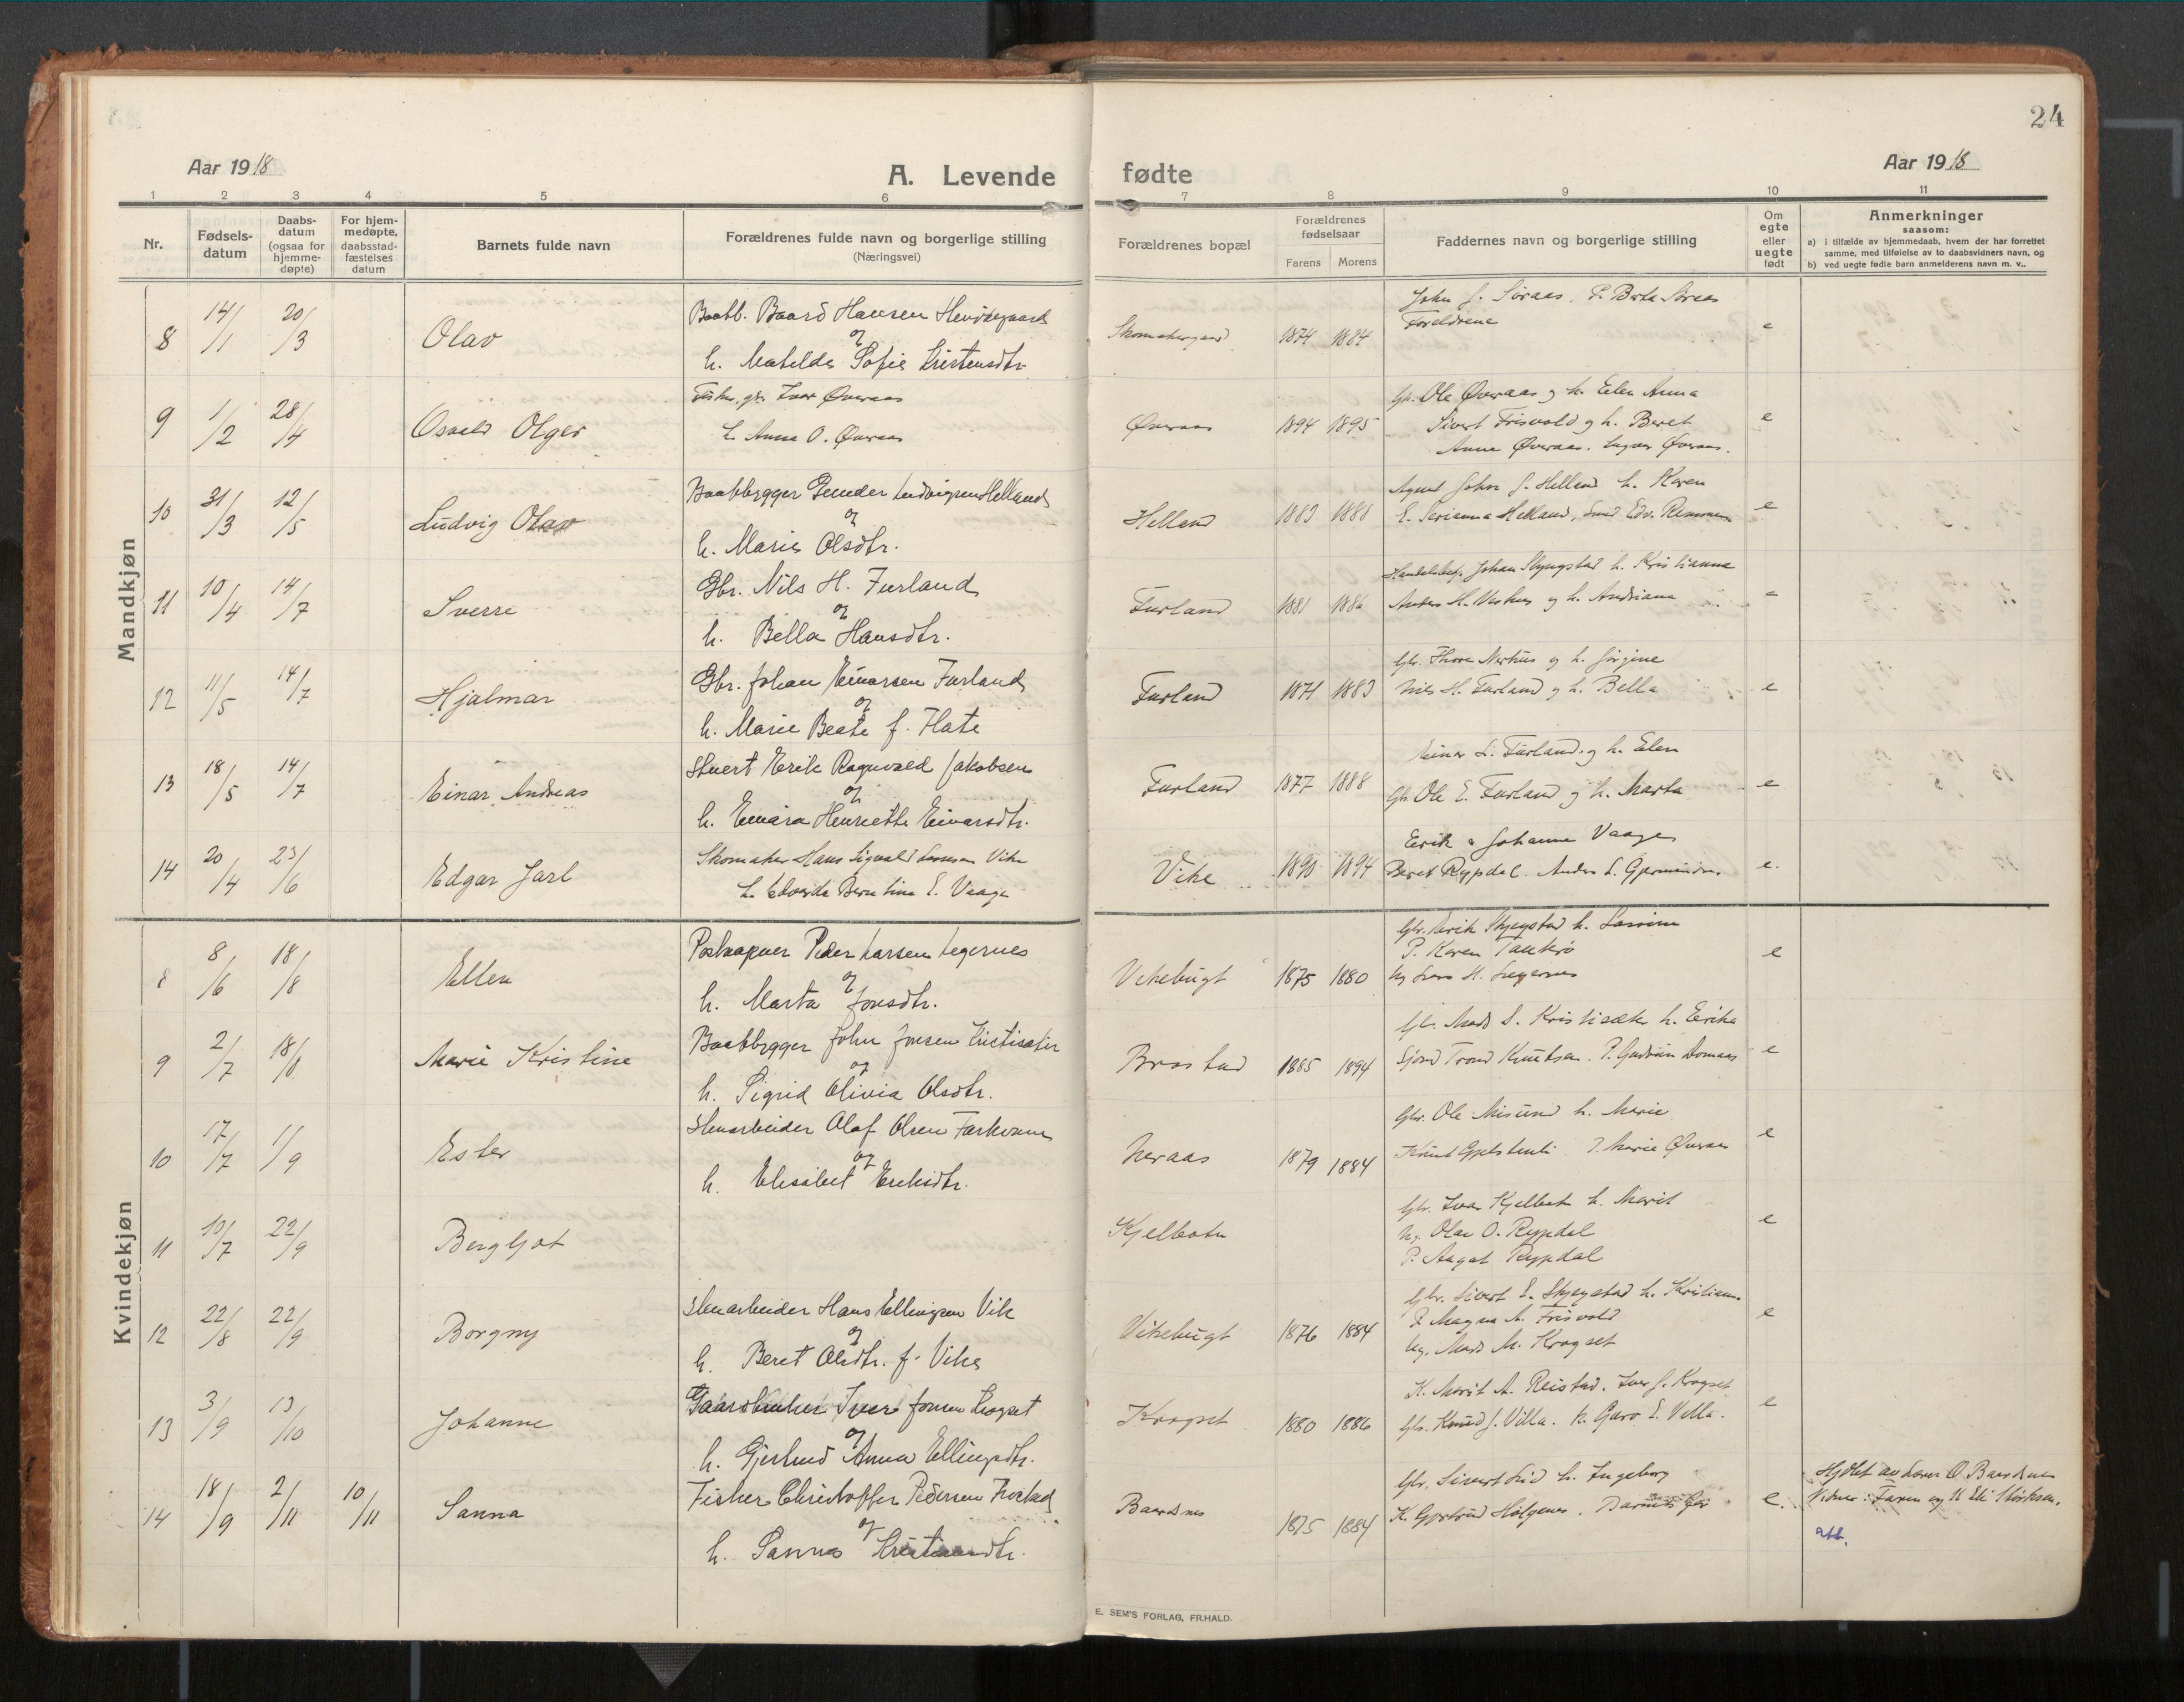 24
Aar 1918
A. Levende fødte
Aar 1918
1 2 3 4 5 6 7 8 9 10 11
Nr.
Fødsels-
datum
Daabs-
datum
(ogsaa for
hjemme-
døpte)
For hjem-
medøpte,
daabsstad-
fæstelses
datum
Barnets fulde navn
Forældrenes fulde navn og borgerlige stilling
(Næringsvei)
Forældrenes bopæl
Forældrenes
fødselsaar
Farens Morens
Faddernes navn og borgerlige stilling
Om
egte
eller
uegte
født
Anmerkninger
saasom:
a) i tilfælde av hjemmedaab, hvem der har forrettet
samme, med tilføielse av to daabsvidners navn, og
b) ved uegte fødte barn anmelderens navn m. v..
Mandkjøn
8 14/1 20/3 Olav
Baatb. Baard Hansen
og
h. Matilde Sofie Kristensdtr.
1874 1884
John J. Søraas. P. Berta Søraas
Foreldrene
e
9 1/2 28/4 Osvald Olger
Fisker, gbr. Ivar Øveraas
h. Anna O. Øveraas
Øveraas 1894 1895
Gbr. Ole Øveraas og h. Elen Anna
Sivert Frisvold og h. Beret
Anne Øveraas. Øveraas.
e
10 31/3 12/5 Ludvig Olav
Baatbygger Ludvigsen Helland
og
h. Marie Olsdtr.
Helland 1883 1888
Agent John J. Helland h. Karen
E. Serianna Helland, Smed Edv. Remmen
e
11 10/4 14/7 Sverre
Gbr. Nils H. Furland
og
h. Bella Hansdtr.
Furland 1881 1886
Johan Skyngstad h. Kristianna
og h. Andriana
e
12 11/5 14/7 Hjalmar
Gbr. Johan Einarsen Furland
og
h. Marie Beate f. Flate
Furland 1871 1883
Gbr. Thore Nerhus og h. Jørgine
Nils H. Furland og h. Bella
e
13 18/5 14/7 Einar Andreas
Erik Ragnvald Jakobsen
og
h. Henriette Einarsdtr.
Furland 1877 1888
Einar L. Furland og h. Elen
Gbr. Ole E. Furland og h. Marta
e
14 20/4 23/6 Edgar Jarl
Skomaker Hans Sigvald Larsen Vike
h. Edvarda Berntine E. Vaage
Vike 1890 1894
Erik & Johanne Vaage
Beret Rypdal. Anders L.
e.
Kvindekjøn
8 8/6 18/8 Ellen
Postaapner Peder Larsen Legernes
og
h. Marta Jonsdtr.
Vikebugt 1875 1880
Gbr. Erik Skjegstad h.
P. Karen Tautrø
e
9 2/7 18/8 Marie Kristine
Baatbygger John Jonsen Kristisæter
og
h. Sigrid Olivia Olsdtr.
Brastad 1885 1894
Gbr. Mads S. Kristisæter h. Erika
Trond Knutsen. P. Gudrun
e
10 17/7 1/9 Ester
Stenarbeider Olaf Olsen
og
h. Elisabet Eriksdtr.
Neraas 1879 1884
Gbr. Ole Misund h. Marie
Knut P. Marie Øveraas
e
11 10/7 22/9 Bergljot
Kjelbotn
Gbr. Ivar Kjelbotn h. Marit
Ug. Olav O. Rypdal
P. Aagot Rypdal
e
12 22/8 22/9 Borgny
Stenarbeider Hans Ellingsen Vik
og
h. Beret Olsdtr. f. Vike
Vikebugt 1876 1884
Gbr. Sivert E. Skjegstad h.
P. Magna A. Frisvold
Ug. Mads M. Krogset
e
13 3/9 13/10 Johanne
Gaardbruker Iver Jonsen Krogset
og
h. Gjertrud Anna Ellingsdtr.
Krogset 1880 1886
K. Marit A. Reistad. Iver J. Krogset
Gbr. Knud J. Villa. K. Guro E. Villa.
e
14 18/9 2/11 10/11 Sanna
Fisker Christoffer Pedersen
og
h. Sanna
Baardsnes 1875 1884
Gbr. Sivert h. Ingeborg
K. Gjertrud
e.
Hjdbt av O. Baardsnes
Vidner: Faren og
att.
E. SEM'S FORLAG, FR.HALD.